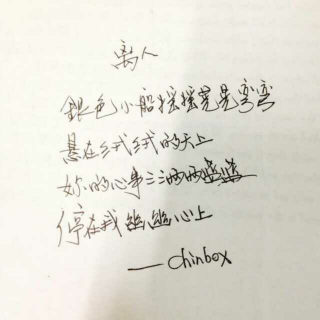 离人
銀色小船摇摇晃晃弯弯
悬在绒绒的天上
妳的心事三三两两蓝蓝
停在我幽幽心上
——chinbox